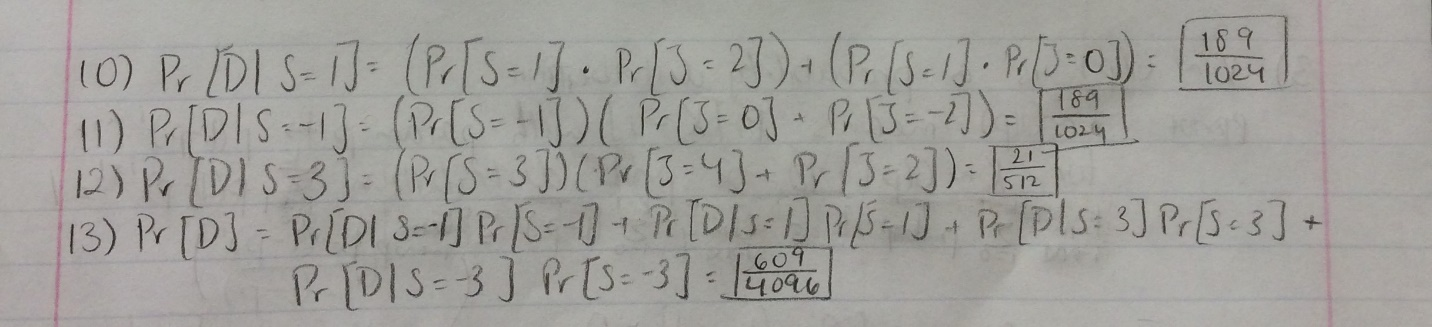 10) Pr[D|S=1] = (Pr[S=1] · Pr[J=2]) + (Pr[S=1] · Pr[J=0]) = 189/1024
11) Pr[D|S=-1] = (Pr[S=-1])(Pr[J=0] + Pr[J=-2]) = 189/1024
12) Pr[D|S=3] = (Pr[S=3])(Pr[J=4] + Pr[J=2]) = 21/512
13) Pr[D] = Pr[D|S=-1] Pr[S=-1] + Pr[D|S=1] Pr[S=1] + Pr[D|S=3] Pr[S=3] +
Pr[D|S=-3] Pr[S=-3] = 609/4096